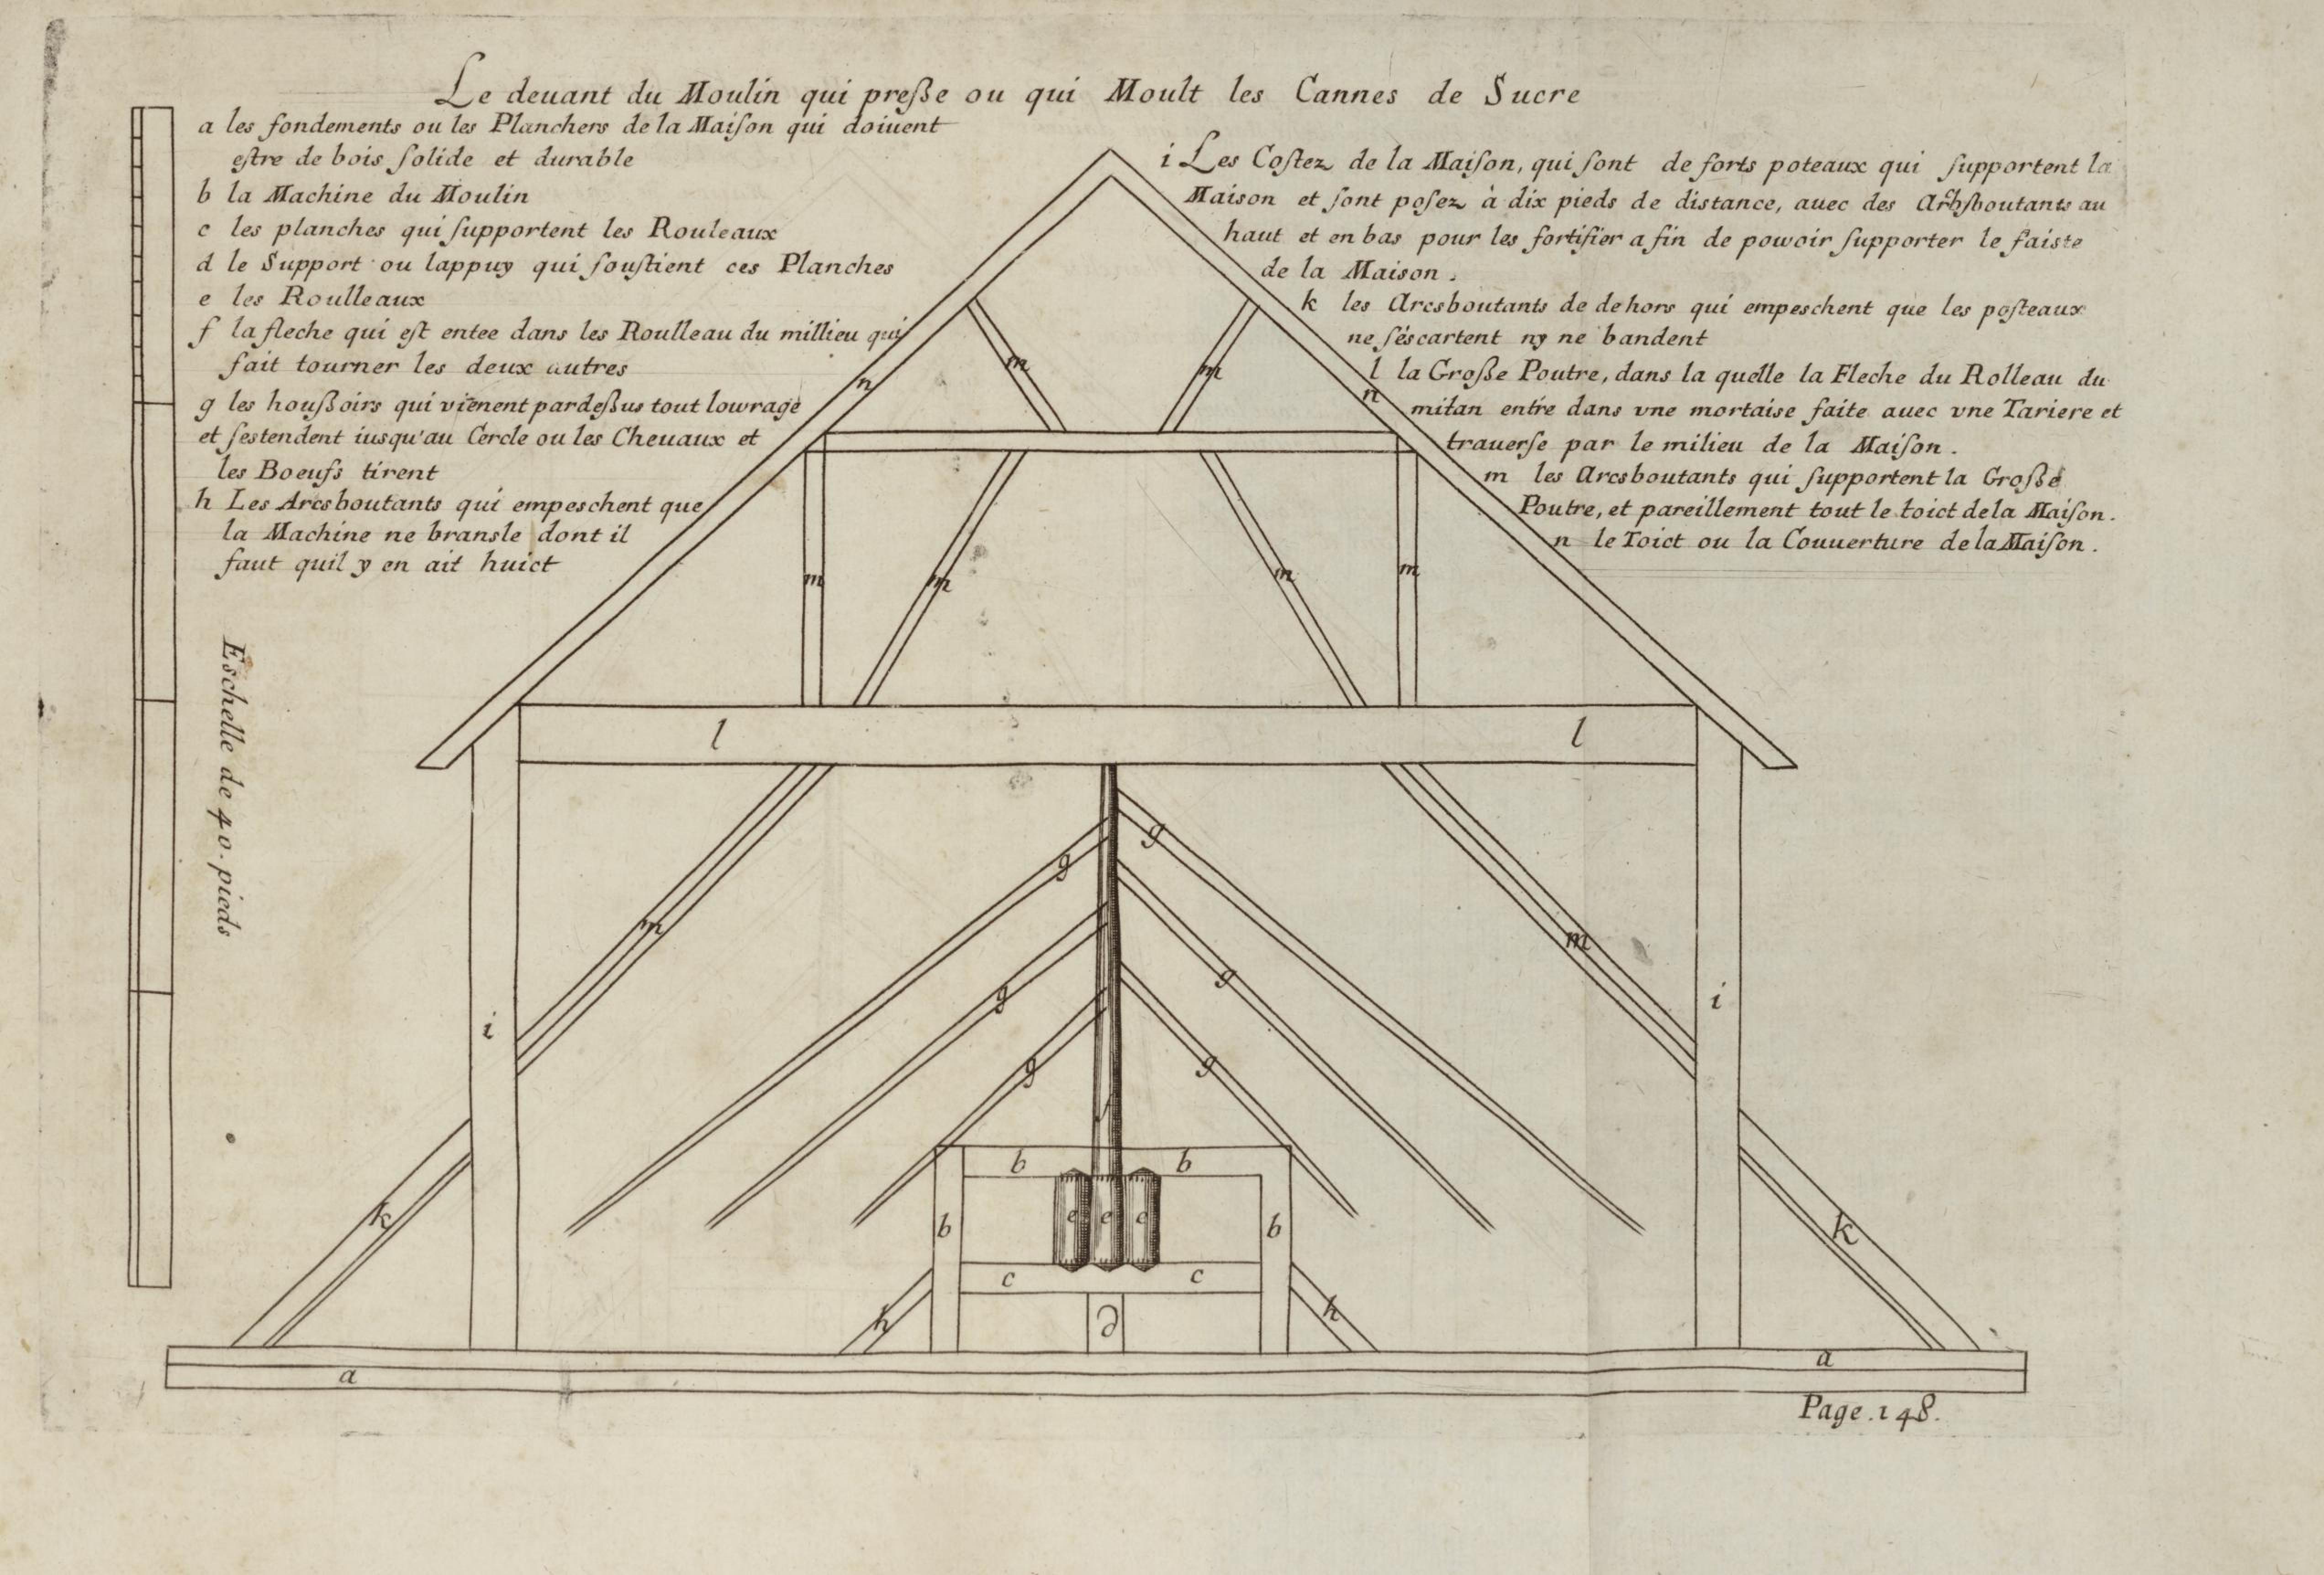 Le deuant du Moulin qui preſße ou qui Moult les Cannes de Sucre
a les fondements ou les Planchers de la Maiſon qui doiuent
eſtre de bois ſolide et durable
b la Machine du Moulin
c les planches qui ſupportent les Rouleaux
d le Support ou lappuy qui ſouſtient ces Planches
e les Roulleaux
f la fleche qui eſt entee dans les Roulleau du millieu qui
fait tourner les deux autres
g les houſßoirs qui vienent pardeſßus tout lowrage
et ſestendent iusqu'au Cercle ou les Cheuaux et
les Boeufs tirent
h Les Arcsboutants qui empeschent que
la Machine ne bransle dont il
faut quil y en ait huict
i Les Coſtez de la Maiſon, qui ſont de forts poteaux qui ſupportent la
Maison et ſont poſez à dix pieds de distance, auec des
haut et en bas pour les fortifier a fin de powoir ſupporter le faiste
de la Maison.
k les Arcsboutants de dehors qui empeschent que les poſteaux
ne ſéscartent ny ne bandent
l la Groſße Poutre, dans la quelle la Fleche du Rolleau du
mitan entre dans vne mortaise faite auec vne Tariere et
trauerſe par le milieu de la Maiſon.
m les Arcsboutants qui ſupportent la Groſße
Poutre, et pareillement tout le toict de la Maiſon.
n le Toict ou la Couuerture de la Maiſon.
Eschelle de 40. pieds
n
n
m
m
m
m
m
m
l
l
g
g
g
g
g
g
m
m
i
i
k
k
f
b
b
b
b
e
e
e
c
c
h
h
d
a
a
Page. 148.